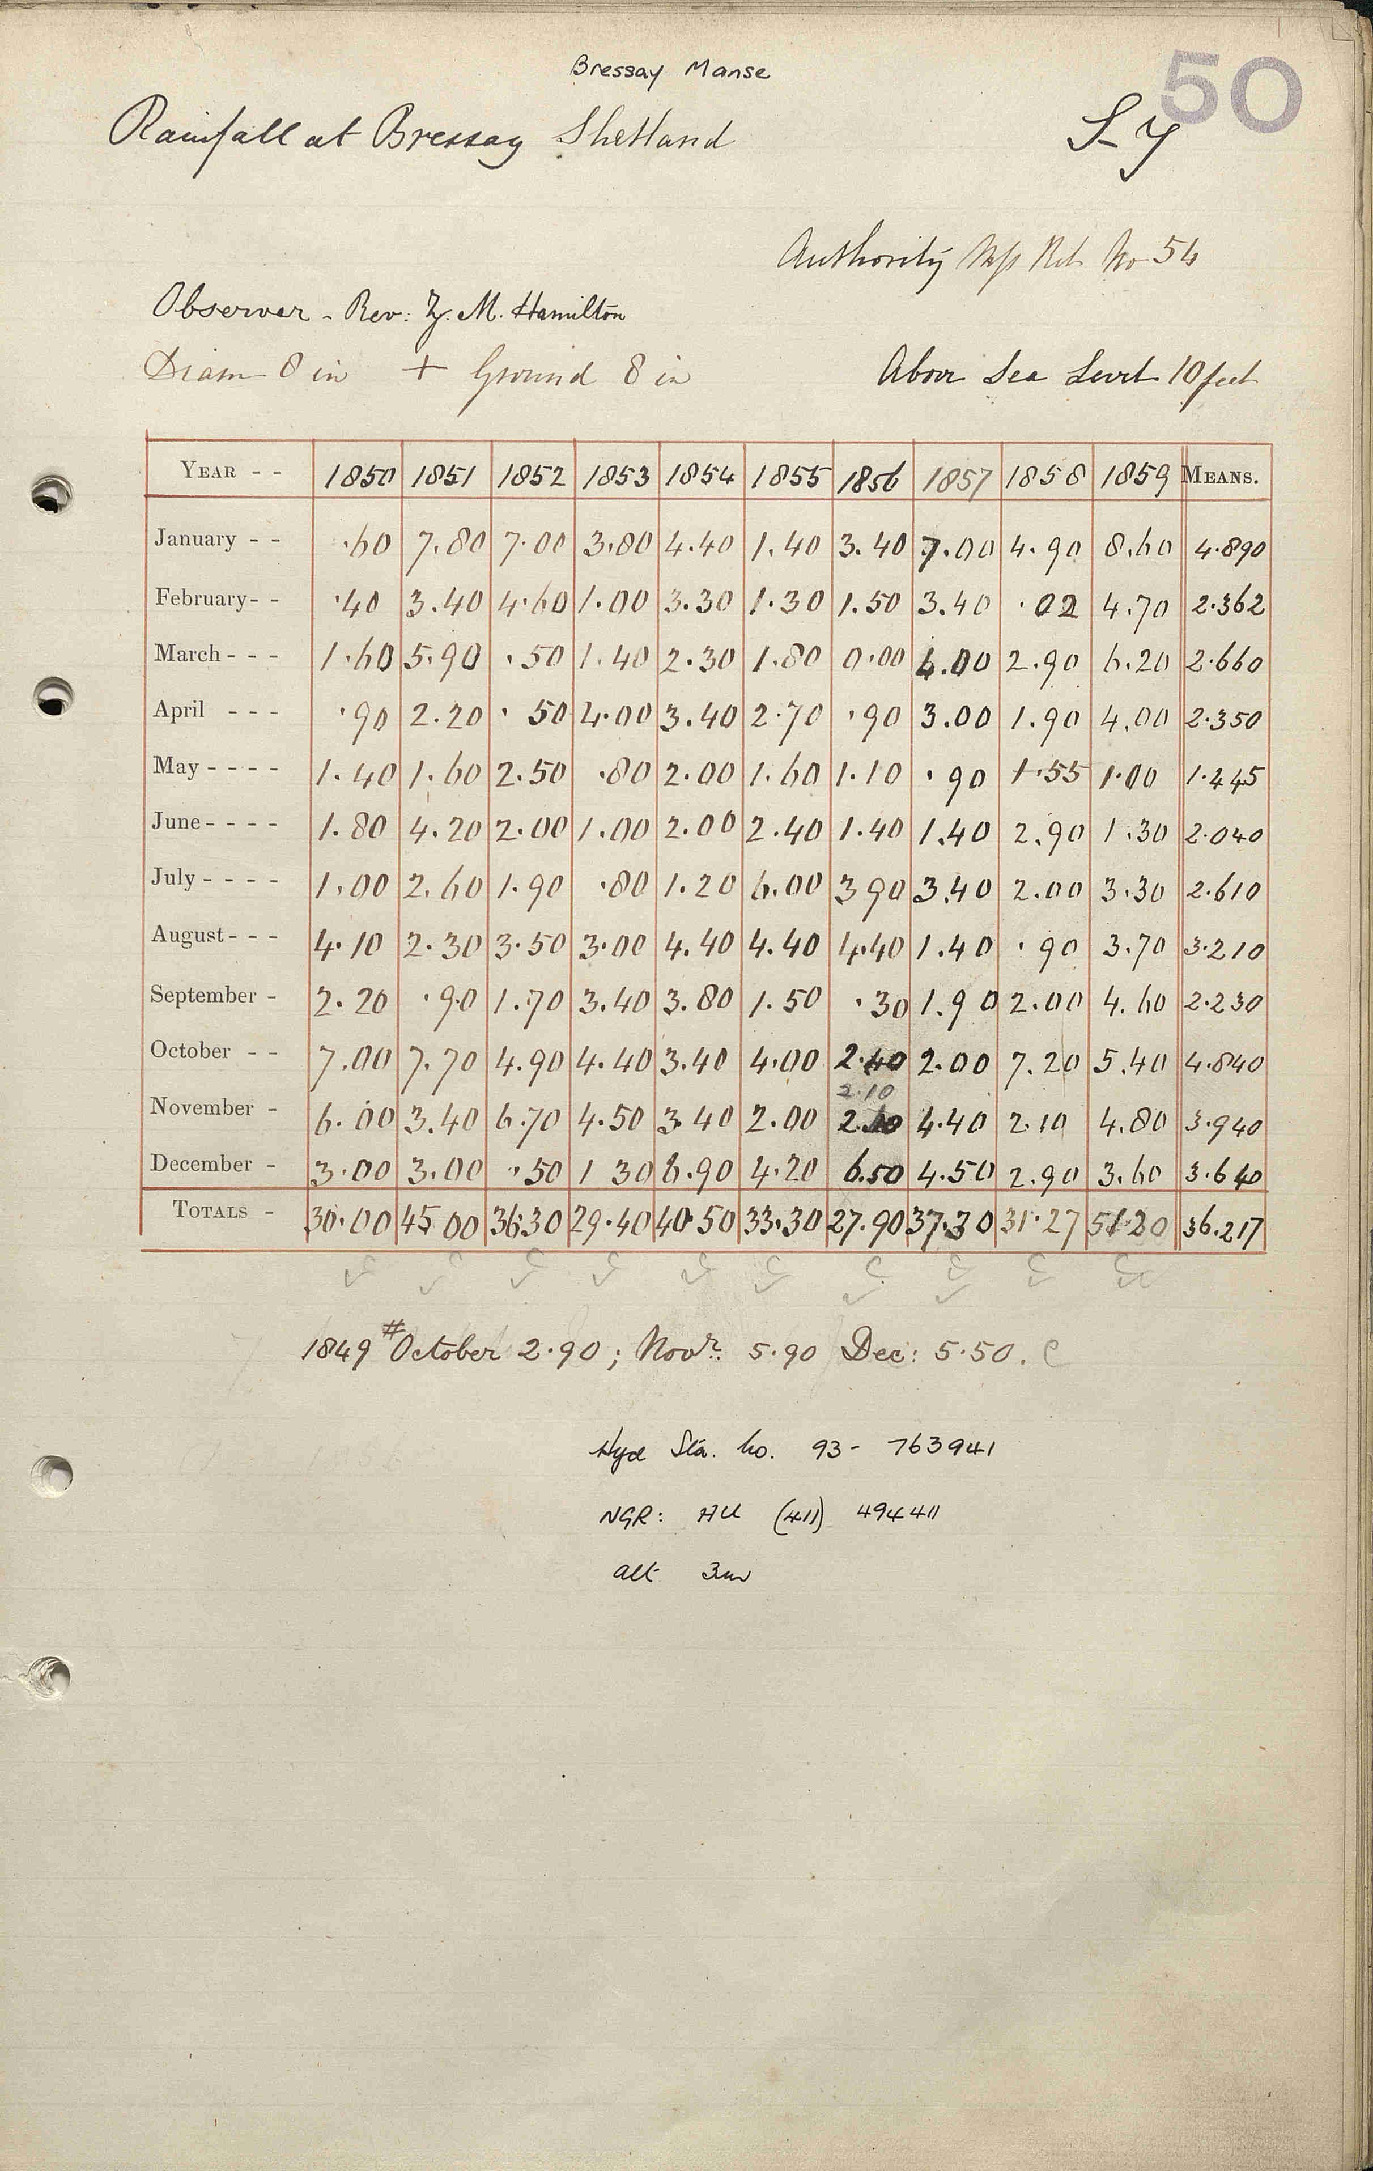 50
Bressay Manse
Rainfall at Bressay Shetland
Authority No 54
Observer - Rev: Z. M. Hamilton
Diam 8 in + Ground 8 in Above Sea Level 10 feet
YEAR - - 1850 1851 1852 1853 1854 1855 1856 1857 1858 1859 MEANS.
January - - .60 7.80 7.00 3.80 4.40 1.40 3.40 7.00 4.90 8.60 4.890
February - - .40 3.40 4.60 1.00 3.30 1.30 1.50 3.40 .02 4.70 2.362
March - - - 1.60 5.90 .50 1.40 2.30 1.80 0.00 4.00 2.90 6.20 2.660
April - - - .90 2.20 .50 4.00 3.40 2.70 .90 3.00 1.90 4.00 2.350
May - - - - 1.40 1.60 2.50 .80 2.00 1.60 1.10 .90 1.55 1.00 1.445
June - - - - 1.80 4.20 2.00 1.00 2.00 2.40 1.40 1.40 2.90 1.30 2.040
July - - - - 1.00 2.60 1.90 .80 1.20 6.00 3 90 3.40 2.00 3.30 2.610
August - - - 4.10 2.30 3.50 3.00 4.40 4.40 4.40 1.40 .90 3.70 3.210
September - 2.20 .90 1.70 3.40 3.80 1.50 .30 1.90 2.00 4.60 2.230
October - - 7.00 7.70 4.90 4.40 3.40 4.00 2.40 2.00 7.20 5.40 4.840
2.10
November - 6.00 3.40 6.70 4.50 3.40 2.00 2.10 4.40 2.10 4.80 3.940
December - 3.00 3.00 .50 1 30 6.90 4.20 6.50 4.50 2.90 3.60 3.640
TOTALS - 30.00 45 00 36.30 29.40 40.50 33.30 27.90 37.30 31.27 51.20 36.217
1849 # October 2.90; Novr. 5.90 Dec: 5.50. C
Hyd Sta. No. 93- 763941
NGR: HU (411) 494411
alt 3m